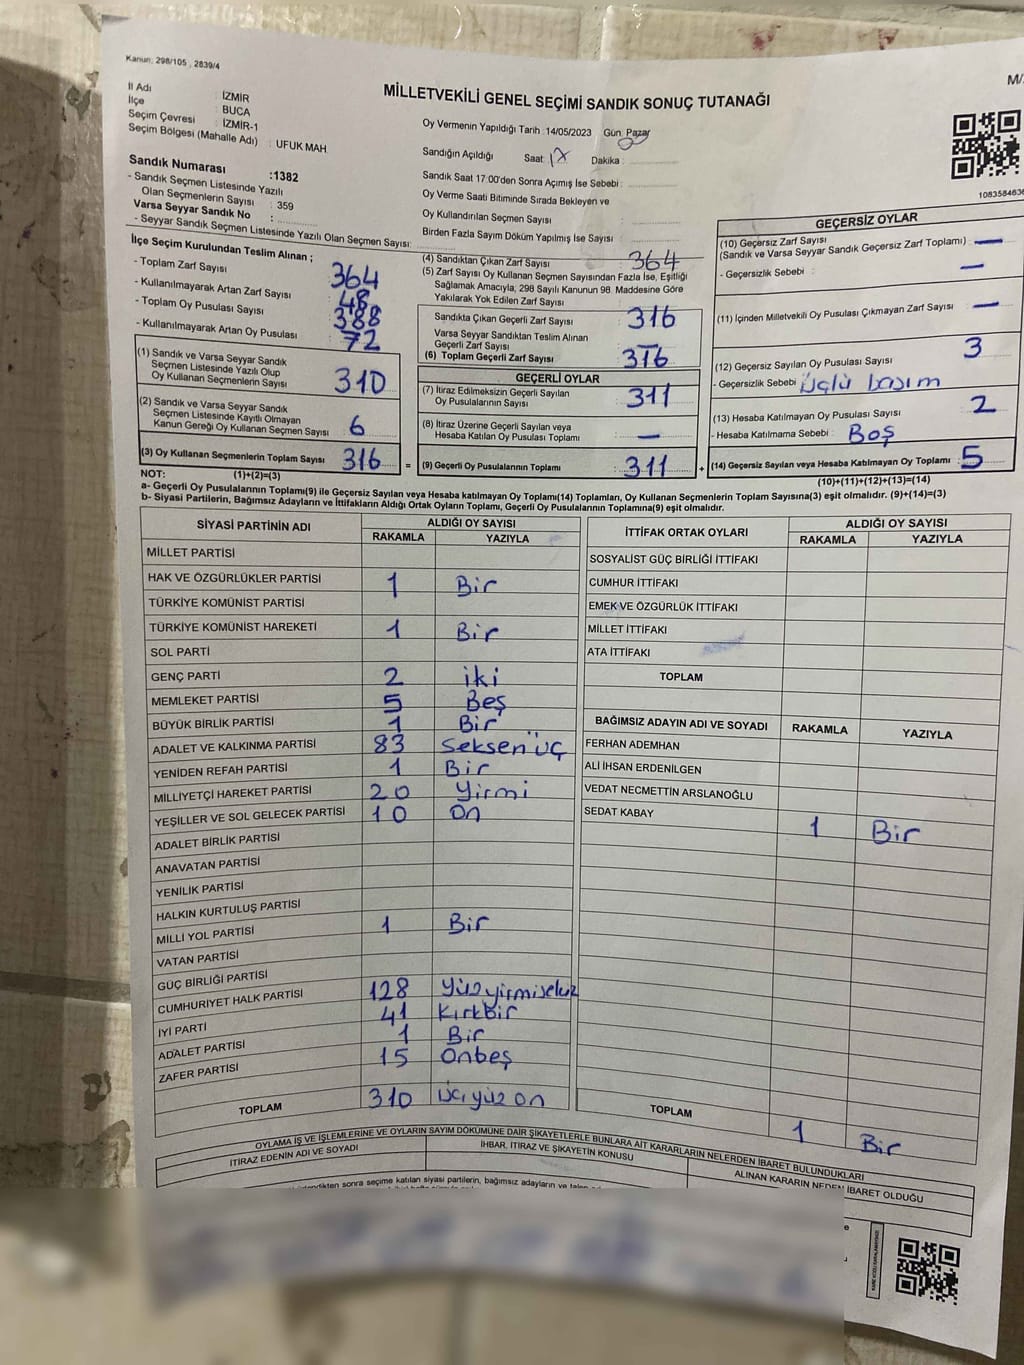 Kanun: 298/105 , 2839/4
M/
MİLLETVEKİLİ GENEL SEÇİMİ SANDIK SONUÇ TUTANAĞI
İl Adı : İZMİR
İlçe : BUCA
Seçim Çevresi : İZMİR-1
Seçim Bölgesi (Mahalle Adı) : UFUK MAH
Sandık Numarası :1382
- Sandık Seçmen Listesinde Yazılı
Olan Seçmenlerin Sayısı : 359
Varsa Seyyar Sandık No :
- Seyyar Sandık Seçmen Listesinde Yazılı Olan Seçmen Sayısı:
Oy Vermenin Yapıldığı Tarih :14/05/2023 Gün: Pazar
Sandığın Açıldığı Saat: 17 Dakika :
Sandık Saat 17:00'den Sonra Açımış İse Sebebi :
Oy Verme Saati Bitiminde Sırada Bekleyen ve
Oy Kullandırılan Seçmen Sayısı :
Birden Fazla Sayım Döküm Yapılmış İse Sayısı :
İlçe Seçim Kurulundan Teslim Alınan ;
- Toplam Zarf Sayısı : 364
- Kullanılmayarak Artan Zarf Sayısı : 48
- Toplam Oy Pusulası Sayısı : 388
- Kullanılmayarak Artan Oy Pusulası : 72
(1) Sandık ve Varsa Seyyar Sandık
Seçmen Listesinde Yazılı Olup
Oy Kullanan Seçmenlerin Sayısı : 310
(2) Sandık ve Varsa Seyyar Sandık
Seçmen Listesinde Kayıtlı Olmayan
Kanun Gereği Oy Kullanan Seçmen Sayısı : 6
(3) Oy Kullanan Seçmenlerin Toplam Sayısı : 316
(4) Sandıktan Çıkan Zarf Sayısı : 364
(5) Zarf Sayısı Oy Kullanan Seçmen Sayısından Fazla İse, Eşitliği
Sağlamak Amacıyla, 298 Sayılı Kanunun 98. Maddesine Göre
Yakılarak Yok Edilen Zarf Sayısı :
Sandıkta Çıkan Geçerli Zarf Sayısı : 316
Varsa Seyyar Sandıktan Teslim Alınan
Geçerli Zarf Sayısı : —
(6) Toplam Geçerli Zarf Sayısı : 316
GEÇERLİ OYLAR
(7) İtiraz Edilmeksizin Geçerli Sayılan
Oy Pusulalarının Sayısı : 311
(8) İtiraz Üzerine Geçerli Sayılan veya
Hesaba Katılan Oy Pusulası Toplamı : —
= (9) Geçerli Oy Pusulalarının Toplamı : 311 +
GEÇERSİZ OYLAR
(10) Geçersiz Zarf Sayısı
(Sandık ve Varsa Seyyar Sandık Geçersiz Zarf Toplamı) : —
- Geçersizlik Sebebi : —
(11) İçinden Milletvekili Oy Pusulası Çıkmayan Zarf Sayısı : —
(12) Geçersiz Sayılan Oy Pusulası Sayısı : 3
- Geçersizlik Sebebi : üçlü basım
(13) Hesaba Katılmayan Oy Pusulası Sayısı : 2
- Hesaba Katılmama Sebebi : Boş
(14) Geçersiz Sayılan veya Hesaba Katılmayan Oy Toplamı : 5
NOT: (1)+(2)=(3)
(10)+(11)+(12)+(13)=(14)
a- Geçerli Oy Pusulalarının Toplamı(9) ile Geçersiz Sayılan veya Hesaba katılmayan Oy Toplamı(14) Toplamları, Oy Kullanan Seçmenlerin Toplam Sayısına(3) eşit olmalıdır. (9)+(14)=(3)
b- Siyasi Partilerin, Bağımsız Adayların ve İttifakların Aldığı Ortak Oyların Toplamı, Geçerli Oy Pusulalarının Toplamına(9) eşit olmalıdır.
SİYASİ PARTİNİN ADI ALDIĞI OY SAYISI
RAKAMLA YAZIYLA
MİLLET PARTİSİ
HAK VE ÖZGÜRLÜKLER PARTİSİ 1 Bir
TÜRKİYE KOMÜNİST PARTİSİ
TÜRKİYE KOMÜNİST HAREKETİ 1 Bir
SOL PARTİ
GENÇ PARTİ 2 iki
MEMLEKET PARTİSİ 5 Beş
BÜYÜK BİRLİK PARTİSİ 1 Bir
ADALET VE KALKINMA PARTİSİ 83 Seksen üç
YENİDEN REFAH PARTİSİ 1 Bir
MİLLİYETÇİ HAREKET PARTİSİ 20 Yirmi
YEŞİLLER VE SOL GELECEK PARTİSİ 10 On
ADALET BİRLİK PARTİSİ
ANAVATAN PARTİSİ
YENİLİK PARTİSİ
HALKIN KURTULUŞ PARTİSİ
MİLLİ YOL PARTİSİ 1 Bir
VATAN PARTİSİ
GÜÇ BİRLİĞİ PARTİSİ
CUMHURİYET HALK PARTİSİ 128 Yüzyirmisekiz
İYİ PARTİ 41 Kırkbir
ADALET PARTİSİ 1 Bir
ZAFER PARTİSİ 15 Onbeş
TOPLAM 310 üçyüz on
İTTİFAK ORTAK OYLARI ALDIĞI OY SAYISI
RAKAMLA YAZIYLA
SOSYALİST GÜÇ BİRLİĞİ İTTİFAKI
CUMHUR İTTİFAKI
EMEK VE ÖZGÜRLÜK İTTİFAKI
MİLLET İTTİFAKI
ATA İTTİFAKI
TOPLAM
BAĞIMSIZ ADAYIN ADI VE SOYADI RAKAMLA YAZIYLA
FERHAN ADEMHAN
ALİ İHSAN ERDENİLGEN
VEDAT NECMETTİN ARSLANOĞLU
SEDAT KABAY 1 Bir
TOPLAM 1 Bir
OYLAMA İŞ VE İŞLEMLERİNE VE OYLARIN SAYIM DÖKÜMÜNE DAİR ŞİKAYETLERLE BUNLARA AİT KARARLARIN NELERDEN İBARET BULUNDUKLARI
İTİRAZ EDENİN ADI VE SOYADI
İHBAR, İTİRAZ VE ŞİKAYETİN KONUSU
ALINAN KARARIN NEDEN İBARET OLDUĞU
sonra seçime katılan siyasi partilerin, bağımsız adayların ve